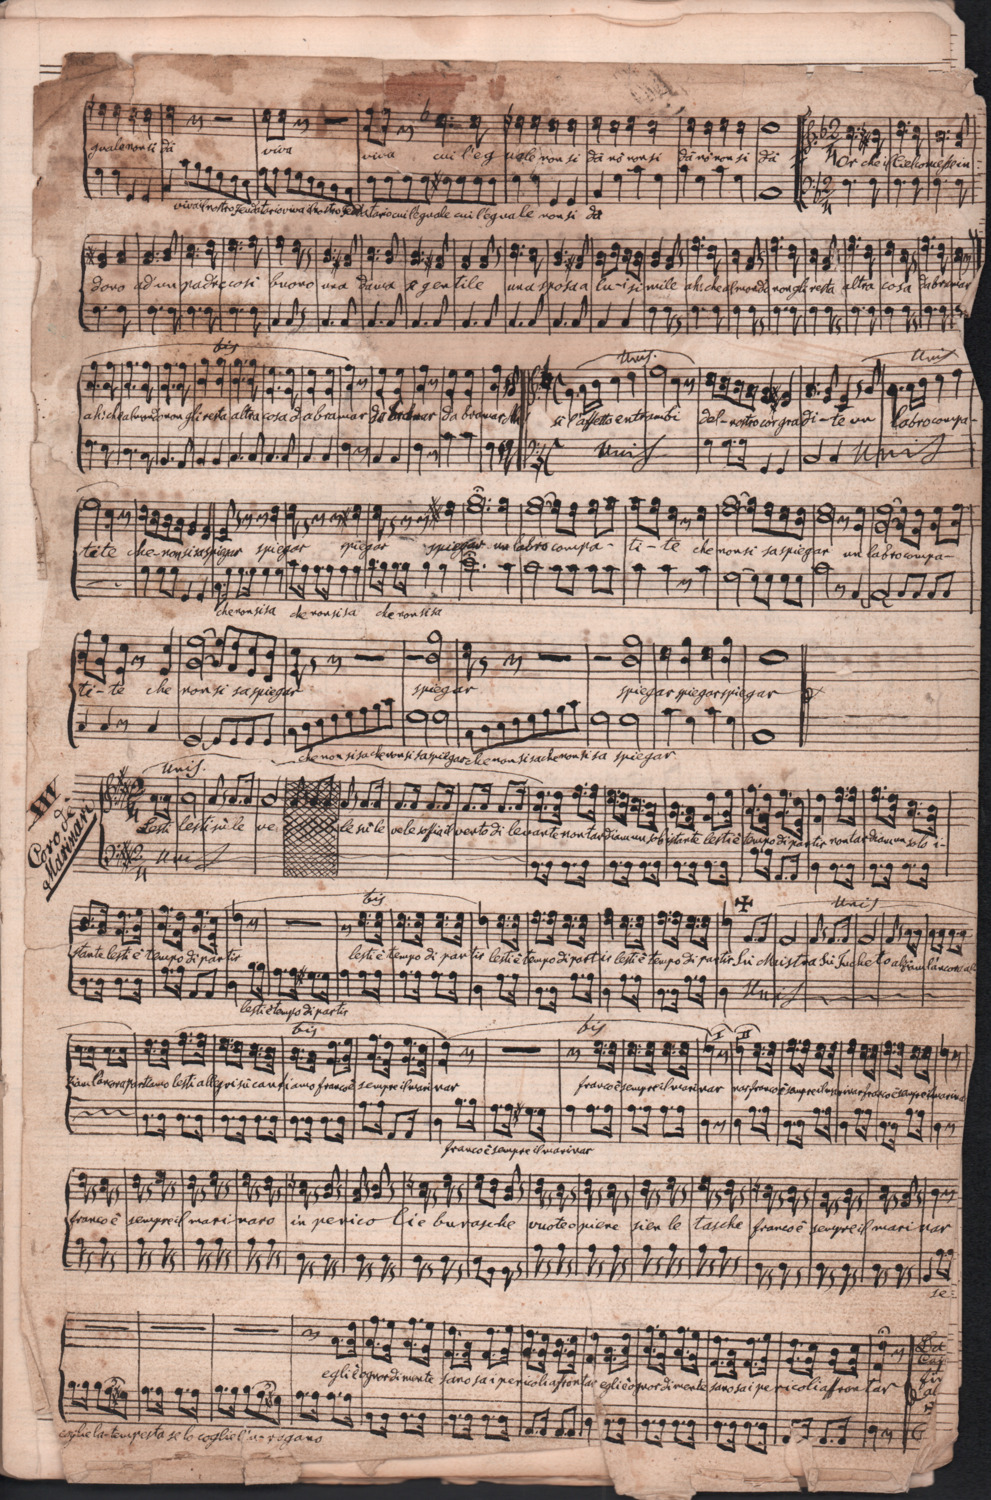 guale non si dà viva viva cui l'eguale non si dà nò non si dà nò non si dà Or che il ciel concesse in-
viva il nostro viva il nostro cui l'eguale cui l'eguale non si dà
dono ad un padre così buono una dama e gentile una sposa a lu-i simile ah che al mondo non gli resta altra cosa da bramar
bis Unis. Unis
ah che al mondo non gli resta altra cosa da bramar da bramar da bramar si l'affetto entrambi del-nostro cor gradi-te un labro compa-
Unis Unis
tite che non si sa spiegar spiegar spiegar spiegar un labro compa-ti-te che non si sa spiegar un labro compa-
che non si sa che non si sa che non si sa
ti-te che non si sa spiegar spiegar spiegar spiegar spiegar
che non si sa che non si sa spiegar che non si sa che non si sa spiegar
III
Coro di Marinari
Unis.
Lesti lesti sù le ve le sù le vele soffia il vento di levante non tardiam un sol istante lesti è tempo di partir non tardiam un solo i-
Unis
bis Unis
stante lesti è tempo di partir lesti è tempo di partir lesti è tempo di partir lesti è tempo di partir Sù Maistra Sù
lesti è tempo di partir Unis
bis bis I II
partiamo lesti allegri sù cantiamo franco è sempre il marinar franco è sempre il marinar nar franco è sempre il marinar franco è sempre il marinar
franco è sempre il marinar
franco è sempre il marinaro in perico lie burasche vuote o piene sien le tasche franco è sempre il marinar
se-
egli è ognor di mente sano sa i pericoli affrontar egli è ognor di mente sano sa i pericoli affrontar
coglie la-tempesta se lo coglie l'u-ragano